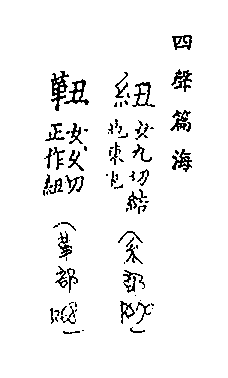 四聲篇海
紐
女九切結
也束也
(糸部
䩗
女久切
正作紐
(革部